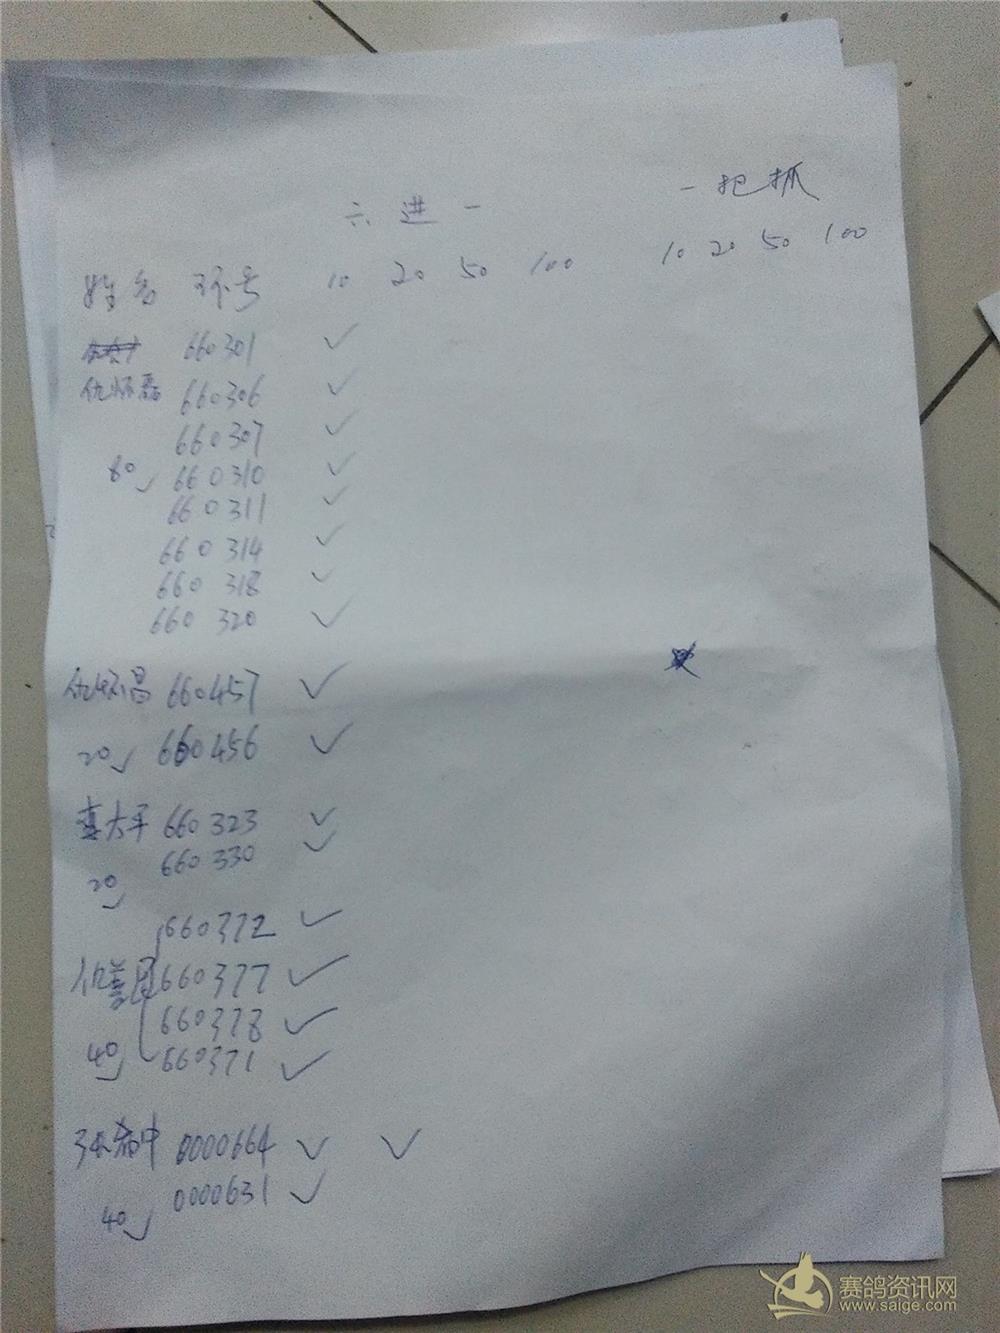 一把抓
六进一
姓名 环号 10 20 50 100 10 20 50 100
660301 ✓
仇怀磊 660306 ✓
660307 ✓
80✓ 660310 ✓
660311 ✓
660314 ✓
660318 ✓
660320 ✓
仇怀昌 660457 ✓
20✓ 660456 ✓
大平 660323 ✓
660330 ✓
20✓
660372 ✓
仇 660377 ✓
660378 ✓
40✓ 660371 ✓
中 0000664 ✓ ✓
0000631 ✓
40✓
赛鸽资讯网
www.saige.com